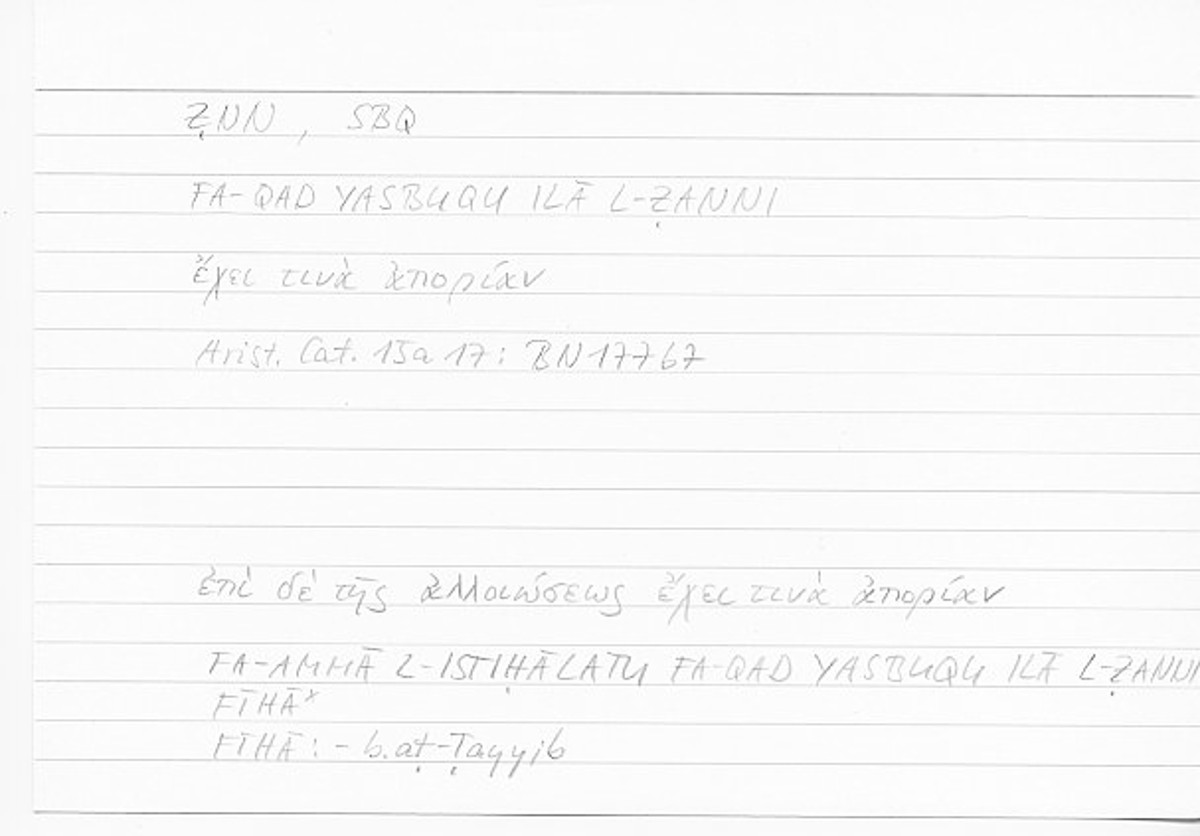 ẒNN, SBQ
FA-QAD YASBUQU ILĀ L-ẒANNI
ἔχει τινὰ ἀπορίαν
Arist. Cat. 15a 17: BN 17767
ἐπὶ δὲ τῆς ἀλλοιώσεως ἔχει τινὰ ἀπορίαν
FA-AMMĀ L-ISTIḤĀLATU FA-QAD YASBUQU ILĀ L-ẒANNI
FĪHĀ*
FĪHĀ: - b. aṭ-Ṭayyib